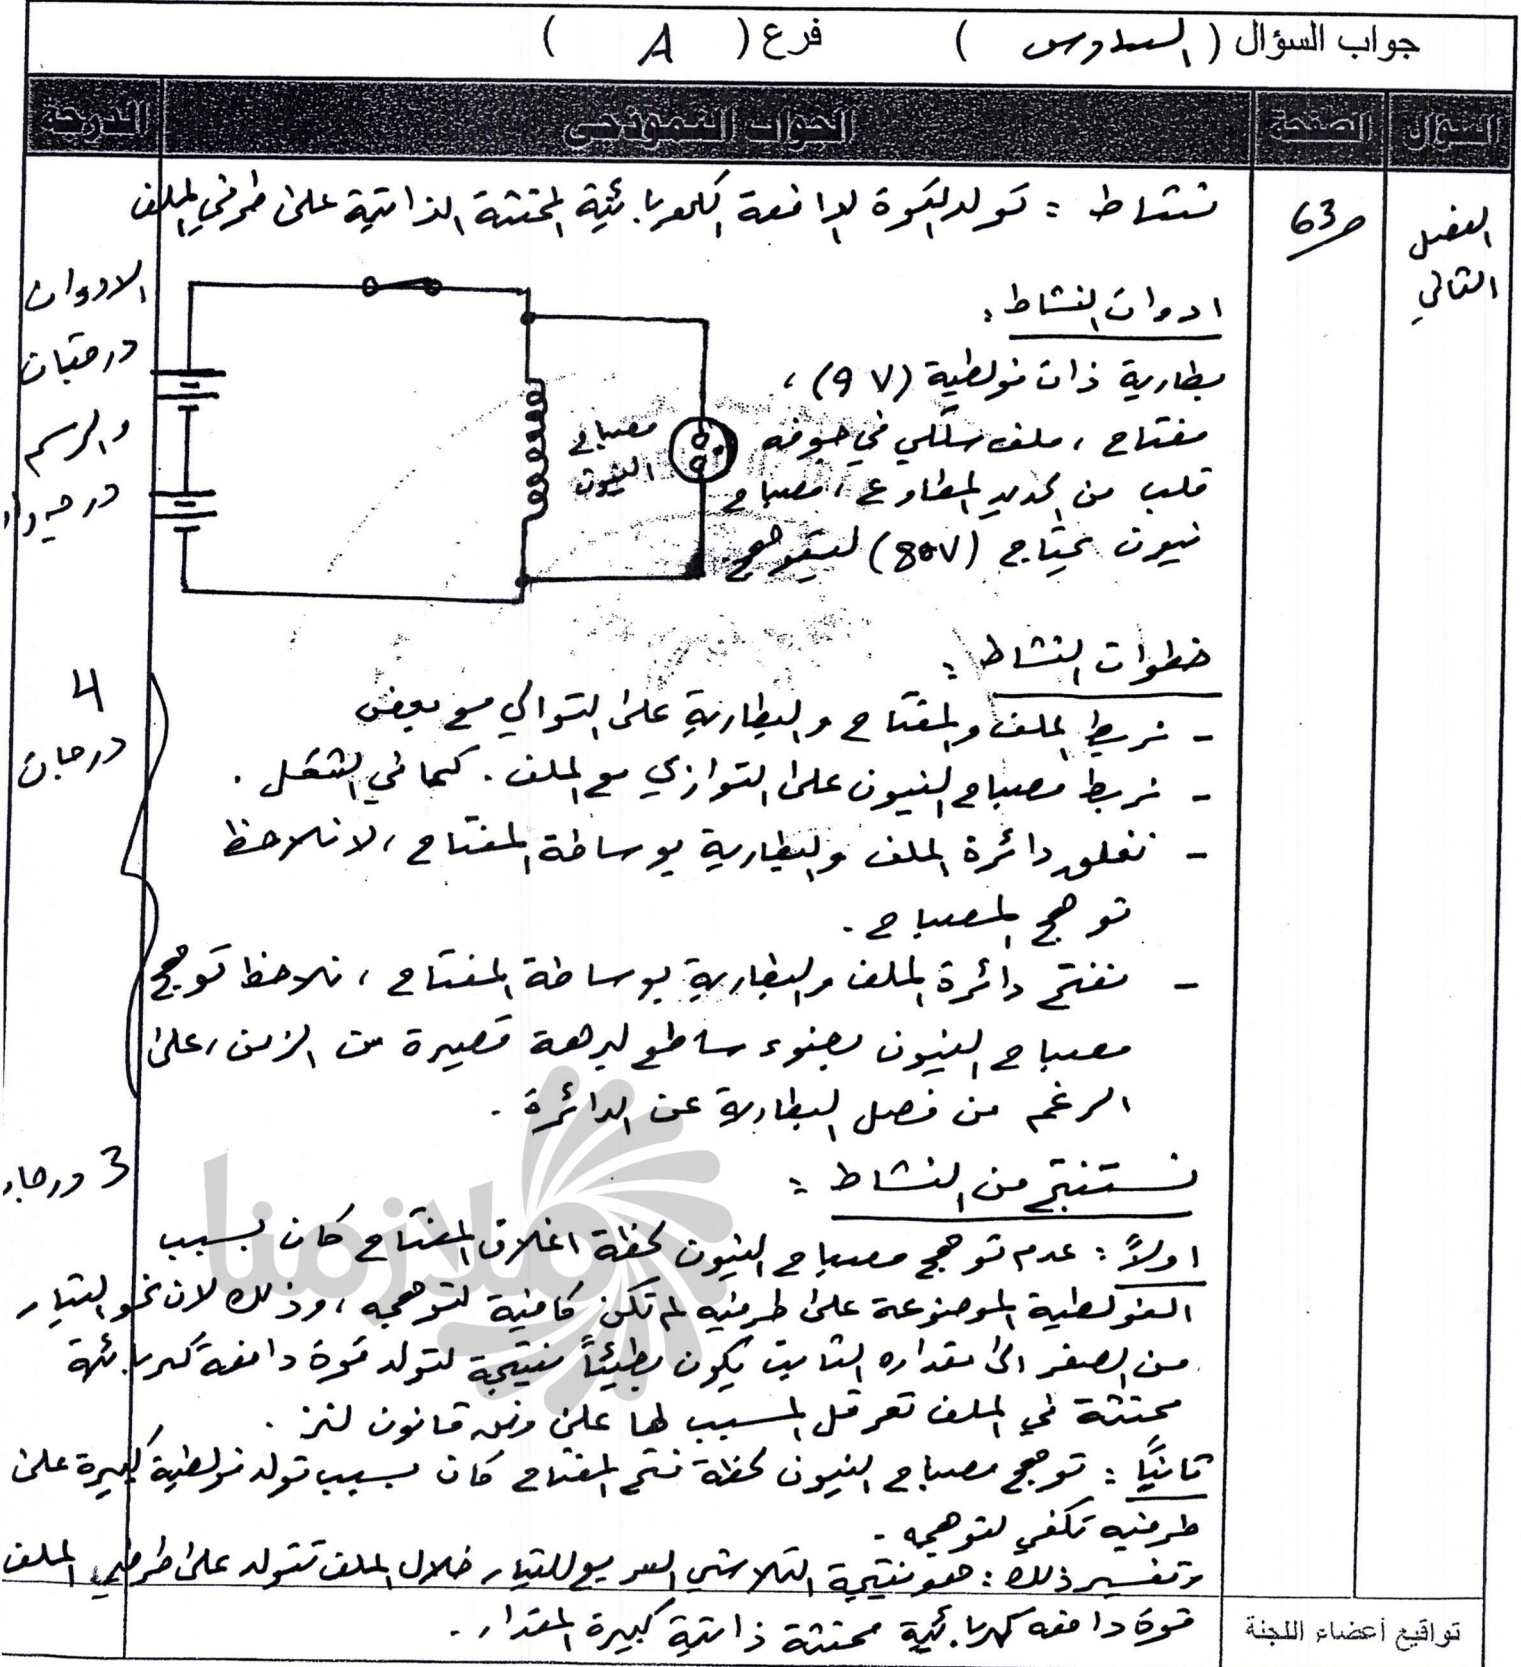 جواب السؤال ( السادس ) فرع ( A )
السؤال الصفحة الجواب النموذجي الدرجة
الفصل الثاني
ص63
نشاط : تولد القوة الدافعة الكهربائية المحتثة الذاتية على طرفي الملف
ادوات النشاط :
بطارية ذات فولطية (9 V) ،
مفتاح ، ملف سلكي في جوفه
قلب من الحديد المطاوع ، مصباح
نيون يحتاج (80V) ليتوهج.
مصباح
النيون
الادوات
درجتان
والرسم
درجة واحدة
خطوات النشاط :
- نربط الملف والمفتاح والبطارية على التوالي مع بعض
- نربط مصباح النيون على التوازي مع الملف . كما في الشكل .
- نغلق دائرة الملف والبطارية بوساطة المفتاح ، لا نلاحظ
توهج المصباح .
- نفتح دائرة الملف والبطارية بوساطة المفتاح ، نلاحظ توهج
مصباح النيون بضوء ساطع لبرهة قصيرة من الزمن ، على
الرغم من فصل البطارية عن الدائرة .
4
درجات
نستنتج من النشاط :
3 درجات
اولاً : عدم توهج مصباح النيون لحظة اغلاق المفتاح كان بسبب
الفولطية الموضوعة على طرفيه لم تكن كافية لتوهجه ، وذلك لان نمو التيار
من الصفر الى مقداره الثابت يكون بطيئاً نتيجة لتولد قوة دافعة كهربائية
محتثة في الملف تعرقل المسبب لها على وفق قانون لنز .
ثانياً : توهج مصباح النيون لحظة فتح المفتاح كان بسبب تولد فولطية كبيرة على
طرفيه تكفي لتوهجه .
وتفسير ذلك : هو نتيجة التلاشي السريع للتيار خلال الملف تتولد على طرفي الملف
قوة دافعه كهربائية محتثة ذاتية كبيرة المقدار .
تواقيع أعضاء اللجنة
ملازمنا